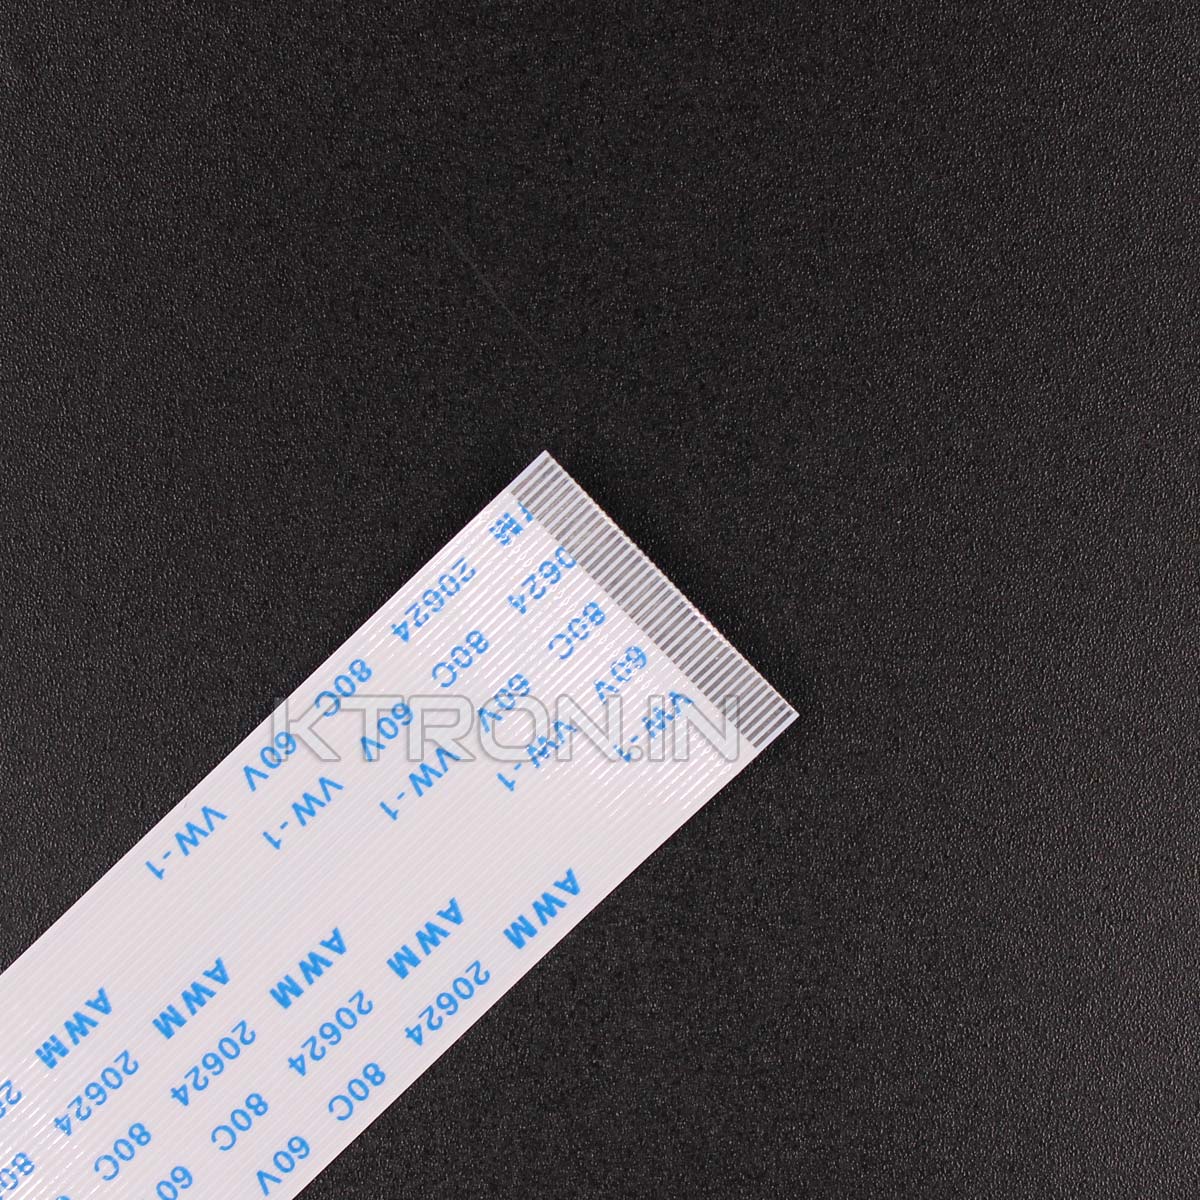 AWM 20624 80C 60V VW-1
AWM 20624 80C 60V VW-1
20624 80C 60V VW-1
80C 60V VW-1
60V VW-1
KTRON.IN
AWM 20624 80C 60V
AWM 20624 80C
AWM 20624 80C
AWM 20624
AWM